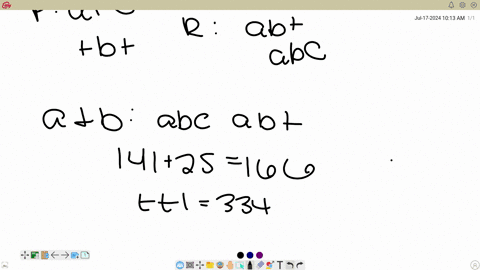 Jul-17-2024 10:13 AM 1/1
R: abt
tbt
abC
a + b: abc abt
141+25=166
ttl = 334